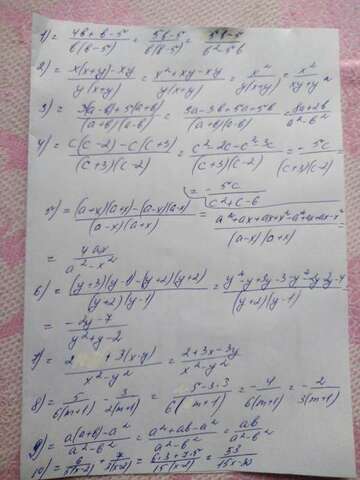 1) = (4b+b-5)/(b(b-5)) = (5b-5)/(b(b-5)) = (5b-5)/(b²-5b)
2) = (x(x+y)-xy)/(y(x+y)) = (x²+xy-xy)/(y(x+y)) = x²/(y(x+y)) = x²/(xy+y²)
3) = (3(a-b)+5(a+b))/((a+b)(a-b)) = (3a-3b+5a+5b)/((a+b)(a-b)) = (8a+2b)/(a²-b²)
4) = (c(c-2)-c(c+3))/((c+3)(c-2)) = (c²-2c-c²-3c)/((c+3)(c-2)) = -5c/((c+3)(c-2))
= -5c/(c²+c-6)
5) = ((a+x)(a+x)-(a-x)(a-x))/((a-x)(a+x)) = (a²+ax+ax+x²-a²+ax+ax-x²)/((a-x)(a+x))
= 4ax/(a²-x²)
6) = ((y+3)(y-1)-(y+2)(y+2))/((y+2)(y-1)) = (y²-y+3y-3-y²-2y-2y-4)/((y+2)(y-1))
= (-2y-7)/(y²+y-2)
7) = (2 +3(x-y))/(x²-y²) = (2+3x-3y)/(x²-y²)
8) = 5/(6(m+1)) - 3/(2(m+1)) = (5-3·3)/(6(m+1)) = -4/(6(m+1)) = -2/(3(m+1))
9) = (a(a+b)-a²)/(a²-b²) = (a²+ab-a²)/(a²-b²) = ab/(a²-b²)
10) = 6/(5(x-2)) + 7/(3(x-2)) = (6·3+7·5)/(15(x-2)) = 53/(15x-30)